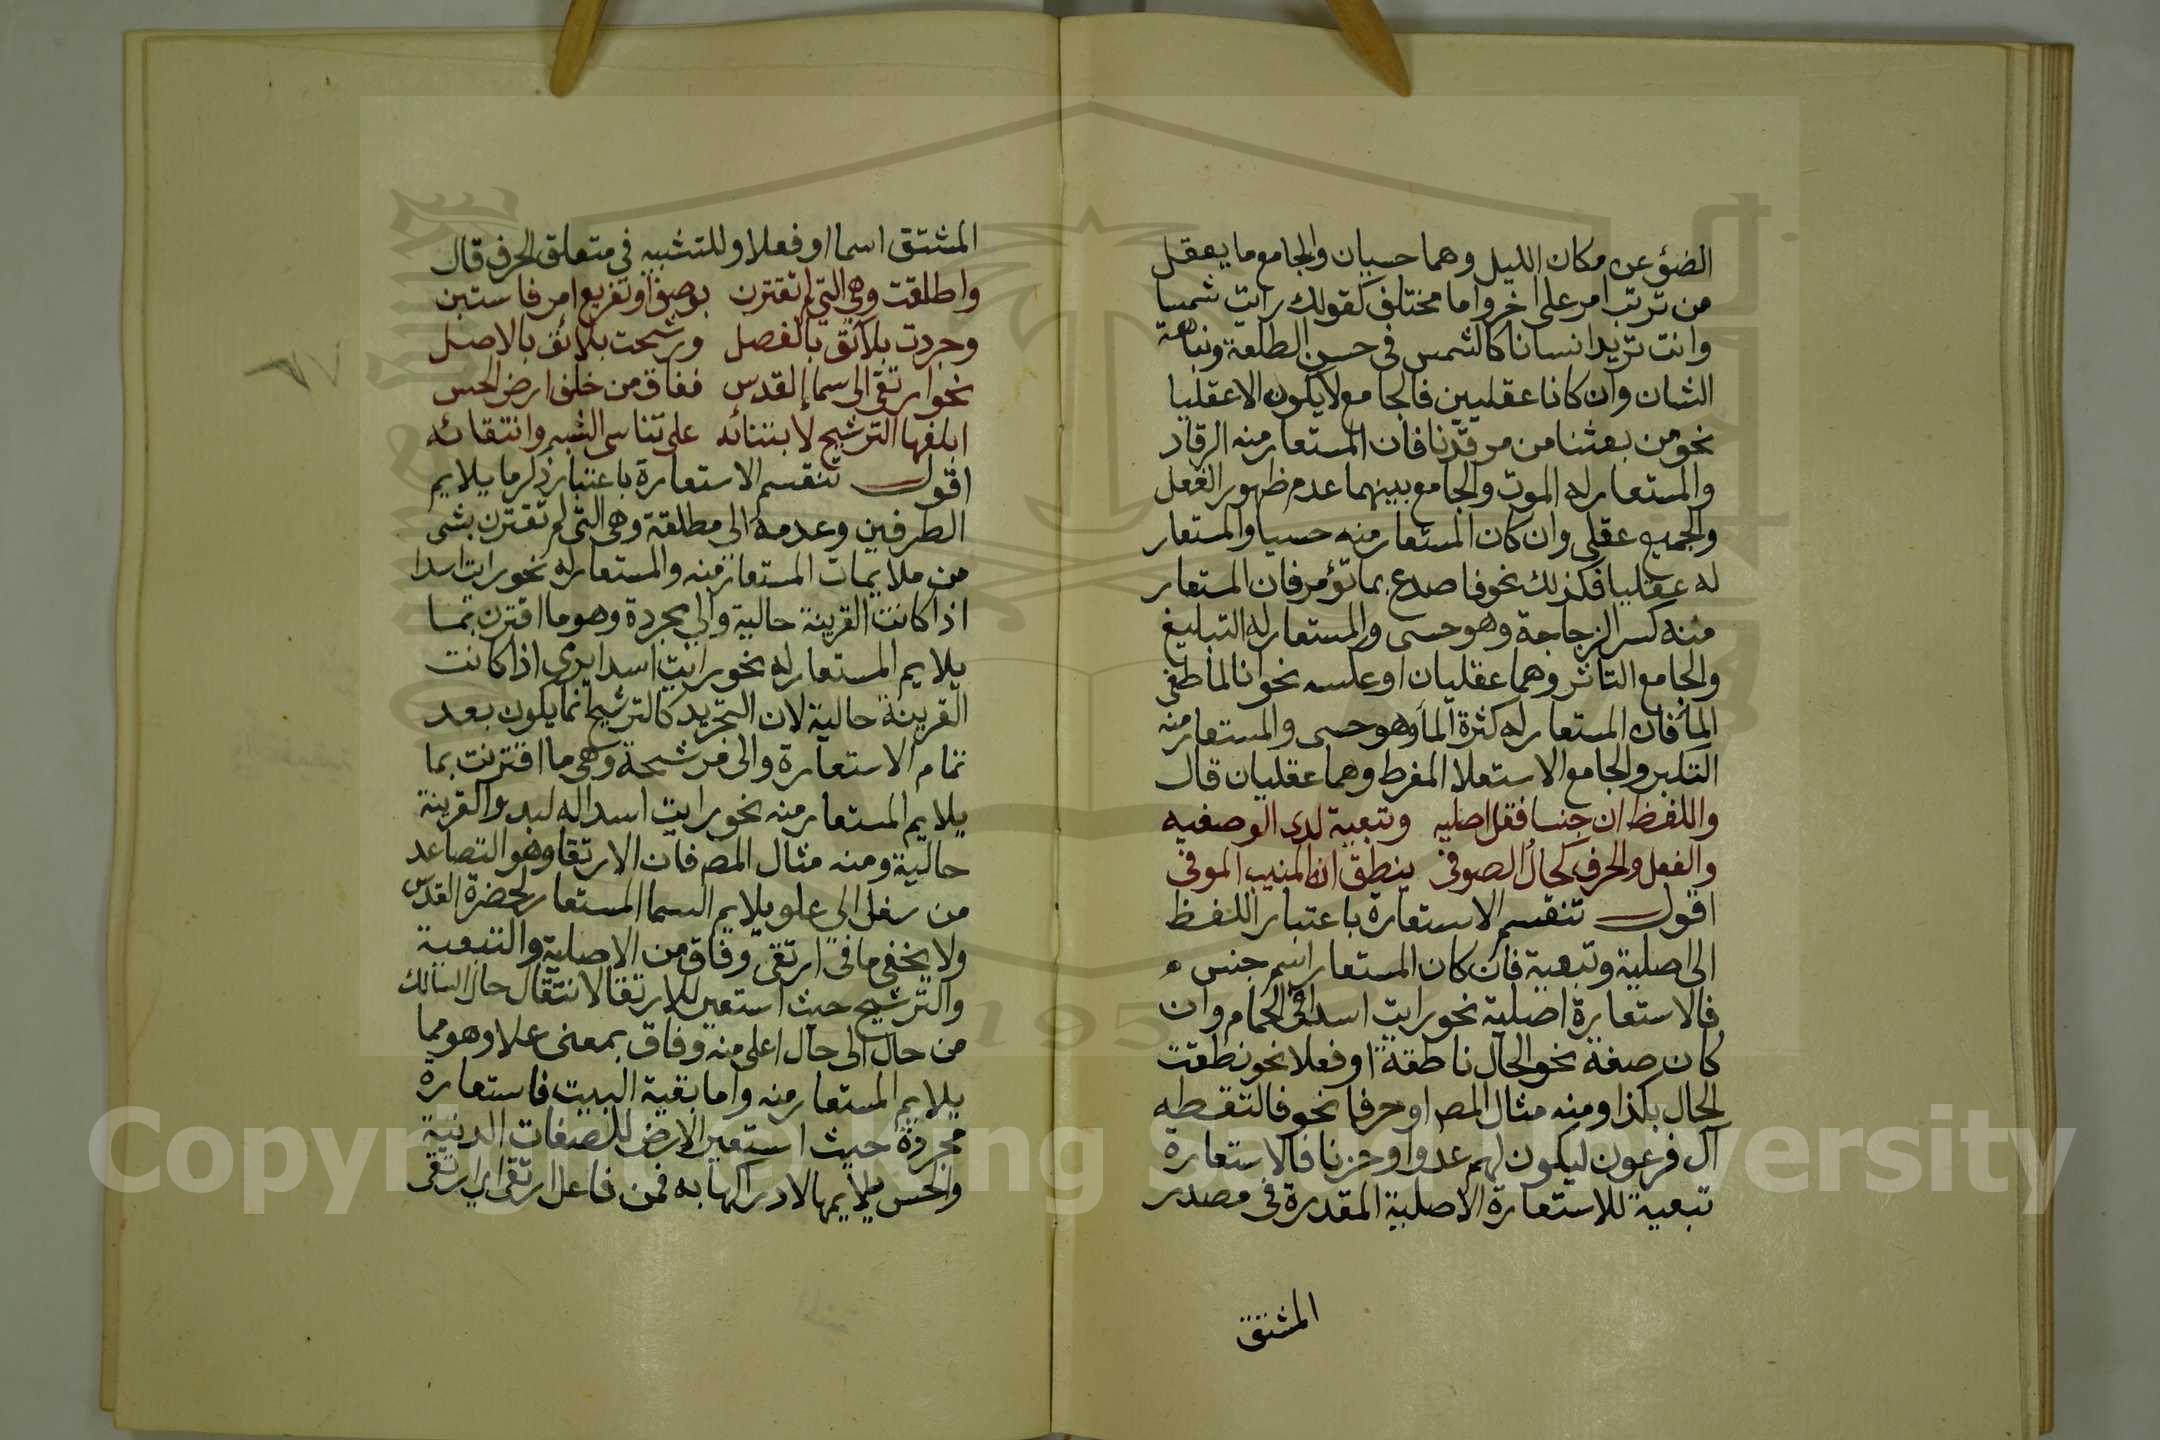 الضؤ عن مكان الليل وهما حسيان والجامع ما يعقل
من ترتب امر على اخر واما مختلف كقولك رايت شمسا
وانت تريد انسانا كالشمس فى حسن الطلعة ونباهة
الشان وان كانا عقليين فالجامع لا يكون الا عقليا
نحو من بعثنا من مرقدنا فان المستعار منه الرقاد
والمستعار له الموت والجامع بينهما عدم ظهور الفعل
والجميع عقلى وان كان المستعار منه حسيا والمستعار
له عقليا فكذلك نحو فاصدع بما تؤمر فان المستعار
منه كسر الزجاجة وهو حسى والمستعار له التبليغ
والجامع التاثر وهما عقليان او عكسه نحو انا لما طغى
المأ فان المستعار له كثرة المأ وهو حسى والمستعار منه
التكبر والجامع الاستعلا المفرط وهما عقليان قال
واللفظ ان جنسا فقل اصليه وتبعية لدى الوصفيه
والفعل والحرف كحال الصوفى ينطق انه المنيب الموفى
اقول تنقسم الاستعارة باعتبار اللفظ
الى اصلية وتبعية فان كان المستعار اسم جنس
فالاستعارة اصلية نحو رايت اسدا فى الحمام وان
كان صفة نحو الحال ناطقة او فعلا نحو نطقت
الحال بكذا ومنه مثال المص او حرفا نحو فالتقطه
آل فرعون ليكون لهم عدوا وحزنا فالاستعارة
تبعية للاستعارة الاصلية المقدرة فى مصدر
المشتق
المشتق اسما او فعلا وللتشبيه فى متعلق الحرف قال
واطلقت وهى التى لم تقترن بوصف او تفريع امر فاستبن
وجردت بلائق بالفصل ورشحت بلائق بالاصل
نحو ارتقى الى سماء القدس ففاق من خلف ارض الحس
ابلغها الترشيح لابتنائه على تناسى الشبه وانتفائه
اقول تنقسم الاستعارة باعتبار ذكر ما يلايم
الطرفين وعدمه الى مطلقة وهى التى لم تقترن بشى
من ملايمات المستعار منه والمستعار له نحو رايت اسدا
اذا كانت القرينة حالية والى مجردة وهو ما اقترن بما
يلايم المستعار له نحو رايت اسدا يرمى اذا كانت
القرينة حالية لان التجريد كالترشيح انما يكون بعد
تمام الاستعارة والى مرشحة وهى ما اقترنت بما
يلايم المستعار منه نحو رايت اسدا له لبد والقرينة
حالية ومنه مثال المص فان الارتقا وهو التصاعد
من سفل الى علو يلايم السما المستعار لحضرة القدس
ولا يخفى ما فى ارتقى وفاق من الاصلية والتبعية
والترشيح حيث استعير للارتقا لانتقال حال السالك
من حال الى حال اعلى منه وفاق بمعنى علا وهو مما
يلايم المستعار منه واما بقية البيت فاستعارة
مجردة حيث استعير الارض للصفات الدنية
والحس يلايمها لادراكها به فمن فاعل ارتقى اى ارتقى
Copyright © King Saud University